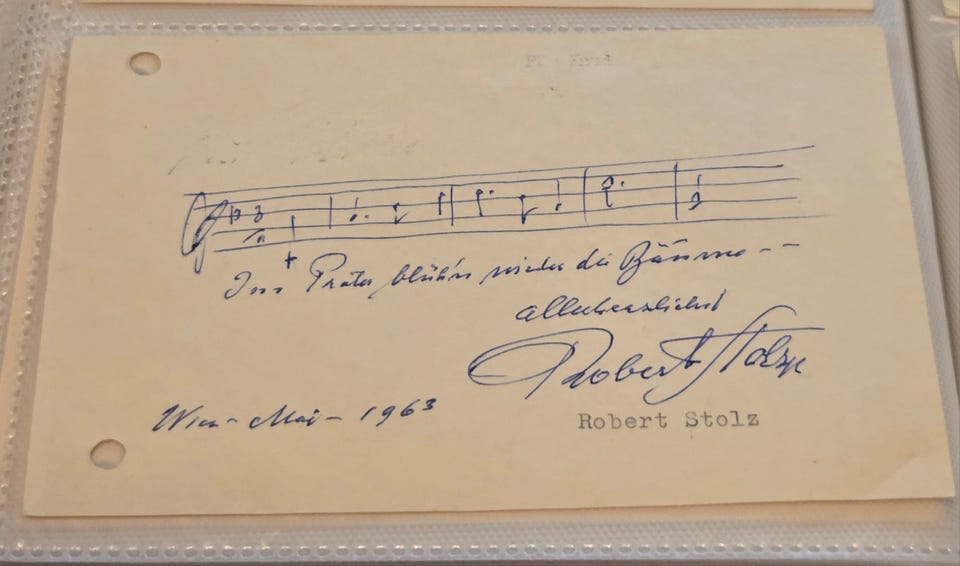 Im Prater blüh'n wieder die Bäume--
allerherzlichst
Robert Stolz
Wien - Mai - 1963
Robert Stolz